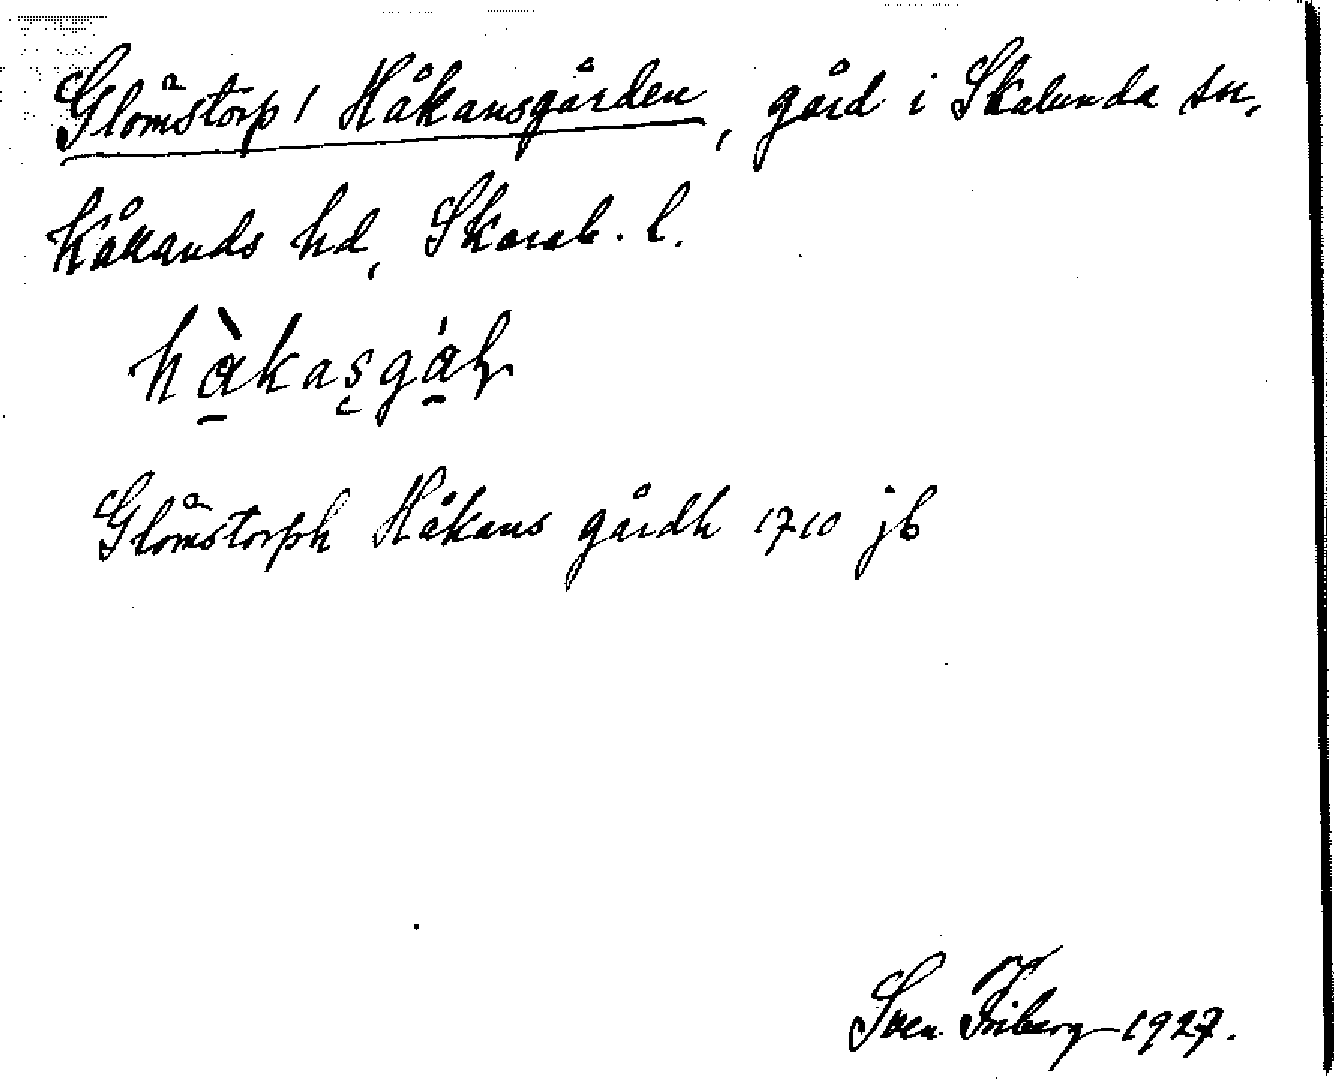 Glömstorp, Håkansgården, gård i Skalunda sn,
Kållands hd, Skarab. l.
hàkasgáɳ
Glömstorph Håkans gårdh 1710 jb
Sven Friberg 1927.